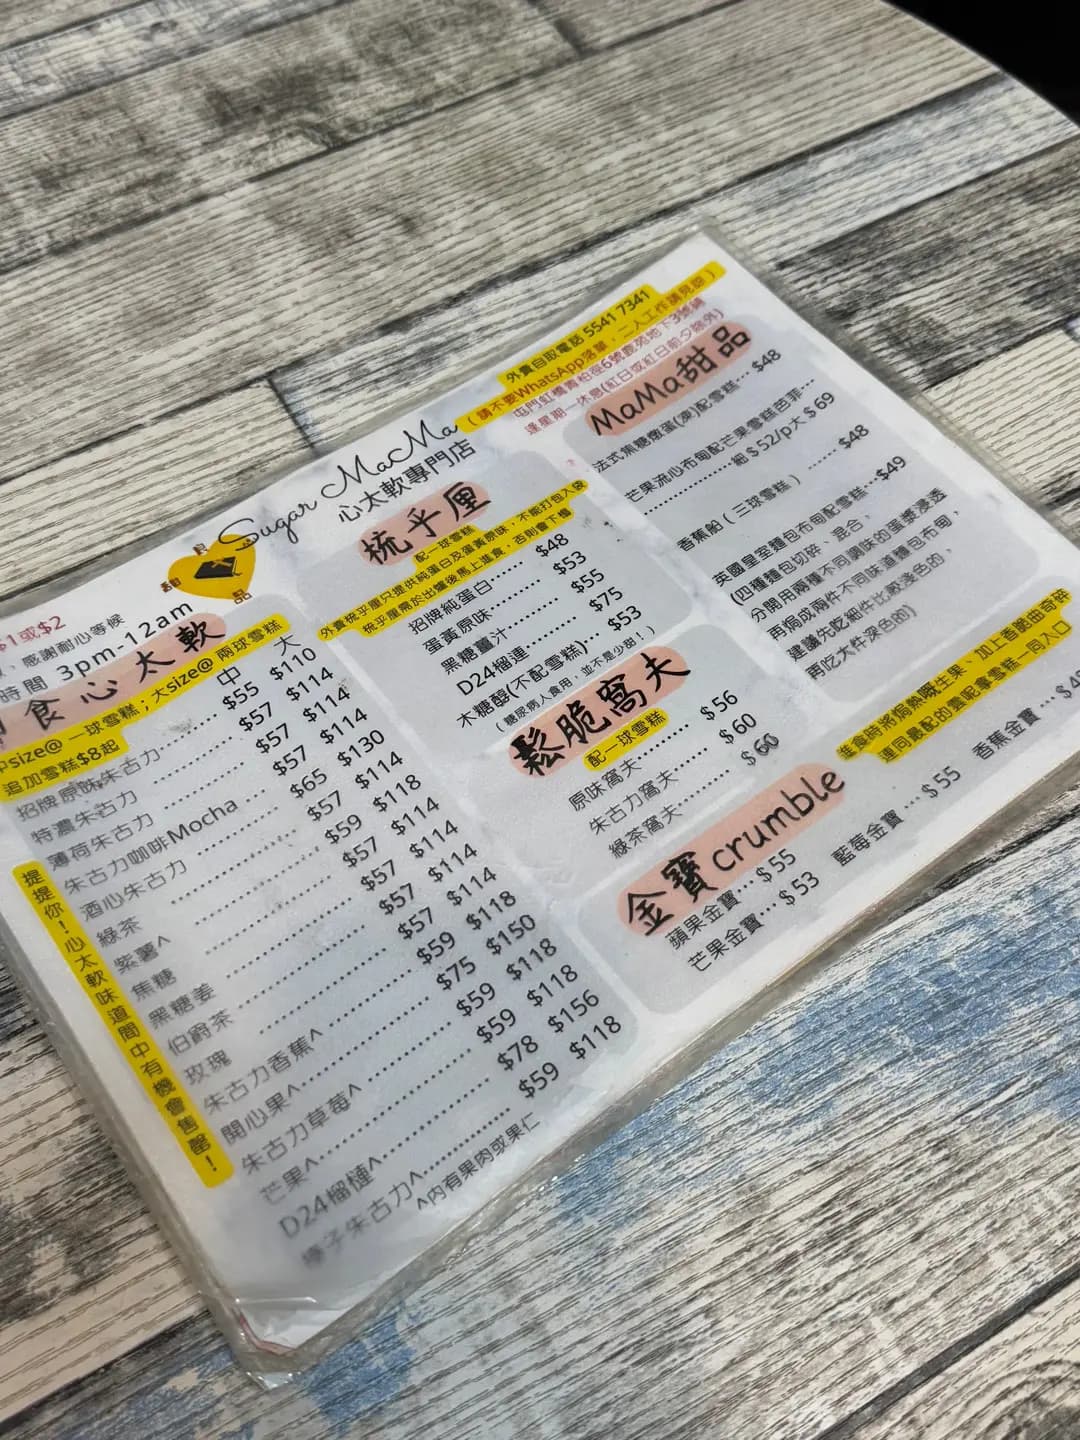 外賣自取電話 5541 7341
(請不要WhatsApp落單，二人工作請見諒)
屯門虹橋青柏徑6號鹿苑地下3號舖
逢星期一休息(紅日或紅日前夕除外)
Sugar MaMa
心太軟專門店
甜
品
$1或$2
，感謝耐心等候
時間 3pm-12am
食心太軟
size@ 一球雪糕；大size@ 兩球雪糕
追加雪糕$8起
中 大
招牌原味朱古力 …… $55 $110
特濃朱古力 …… $57 $114
薄荷朱古力 …… $57 $114
朱古力咖啡Mocha …… $57 $114
酒心朱古力 …… $65 $130
綠茶 …… $57 $114
紫薯^ …… $59 $118
焦糖 …… $57 $114
黑糖姜 …… $57 $114
伯爵茶 …… $57 $114
玫瑰 …… $57 $114
朱古力香蕉^ …… $59 $118
開心果^ …… $75 $150
朱古力草莓^ …… $59 $118
芒果^ …… $59 $118
D24榴槤^ …… $78 $156
朱古力^ …… $59 $118
^內有果肉或果仁
提提你！心太軟味道間中有機會售罄！
梳乎厘
配一球雪糕
外賣梳乎厘只提供純蛋白及蛋黃原味，不能打包入袋
梳乎厘需於出爐後馬上進食，否則會下榻
招牌純蛋白 …… $48
蛋黃原味 …… $53
黑糖薑汁 …… $55
D24榴連 …… $75
木糖醇(不配雪糕) … $53
(糖尿病人食用，並不是少甜！)
鬆脆窩夫
配一球雪糕
原味窩夫 …… $56
朱古力窩夫 …… $60
綠茶窩夫 …… $60
MaMa甜品
法式焦糖燉蛋(凍)配雪糕 … $48
芒果流心布甸配芒果雪糕芭菲…
…… 細$52/p大$69
香蕉船(三球雪糕) …… $48
英國皇室麵包布甸配雪糕 … $49
(四種麵包切碎、混合，
分開用兩種不同調味的蛋漿浸透
再焗成兩件不同味道麵包布甸，
建議先吃細件比較淺色的，
再吃大件深色的)
金寶crumble
進食時將焗熱嘅生果、加上香脆曲奇碎
連同最配的雲呢拿雪糕一同入口
蘋果金寶 … $55 藍莓金寶 … $55 香蕉金寶 …
芒果金寶 … $53